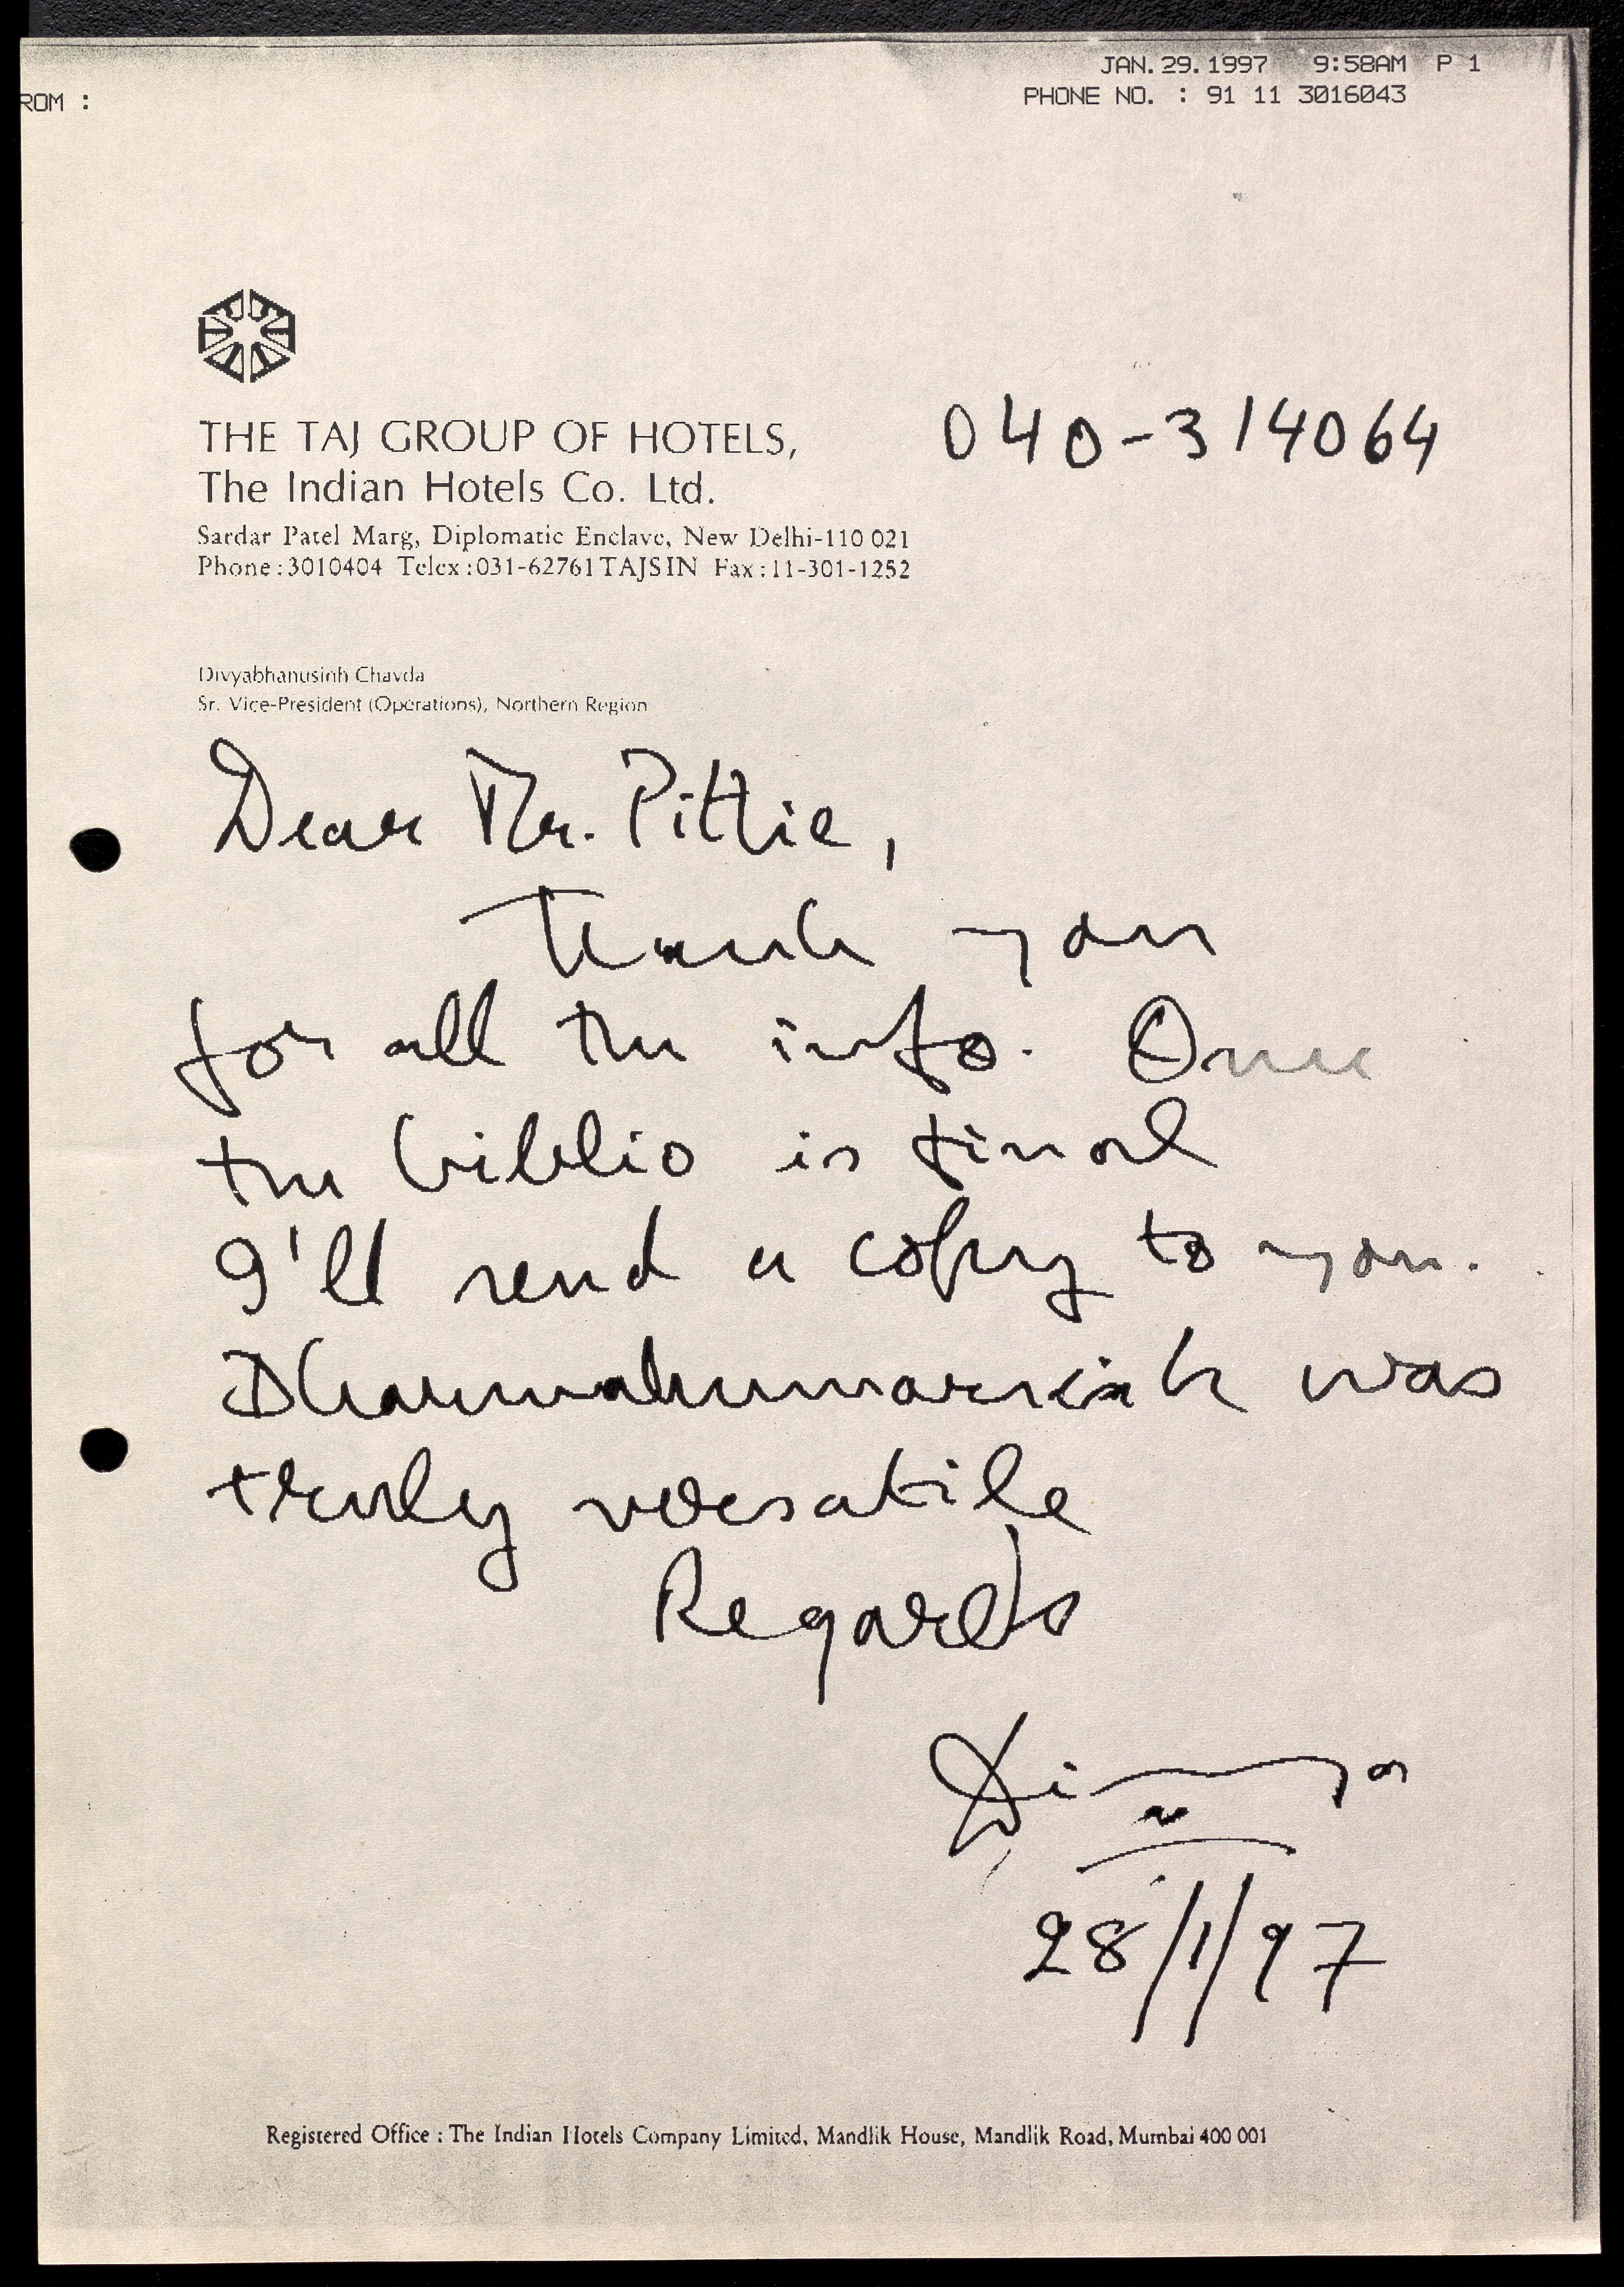 JAN.29.1997 9:58AM P 1
ROM : PHONE NO. : 91 11 3016043
040-314064
THE TAJ GROUP OF HOTELS,
The Indian Hotels Co. Ltd.
Sardar Patel Marg, Diplomatic Enclave, New Delhi-110 021
Phone:3010404 Telex:031-62761TAJSIN Fax:11-301-1252
Divyabhanusinh Chavda
Sr. Vice-President (Operations), Northern Region
Dear Mr. Pittie,
Thank you
for all the info. Once
the biblio is final
I'll send a copy to you.
Dharmakumarsinh was
truly versatile
Regards
28/1/97
Registered Office : The Indian Hotels Company Limited, Mandlik House, Mandlik Road, Mumbai 400 001